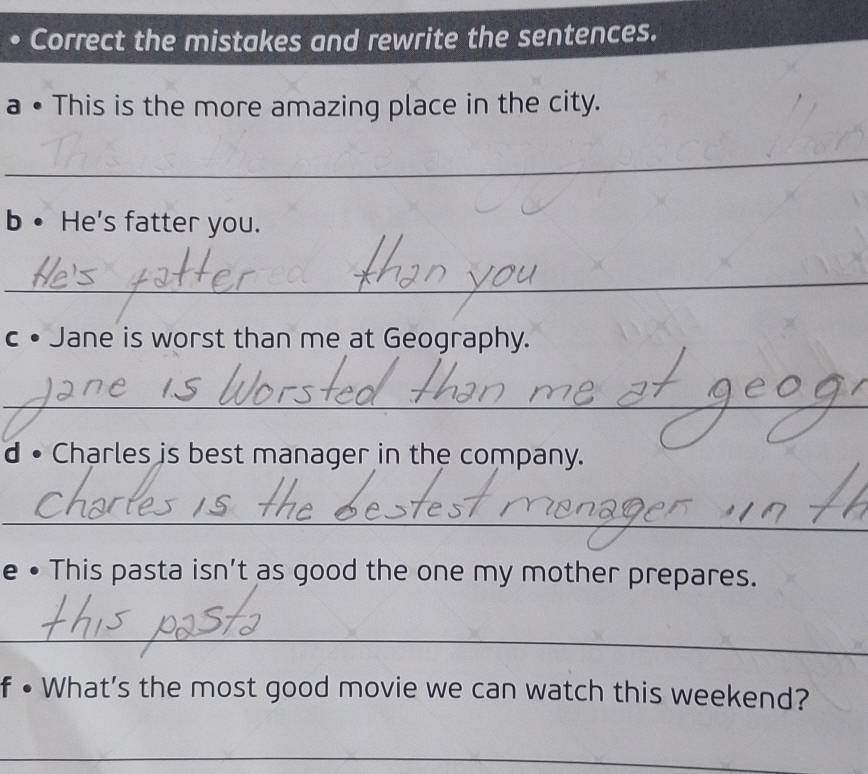 • Correct the mistakes and rewrite the sentences.
a • This is the more amazing place in the city.
This is the place than
b • He's fatter you.
He's fatter than you
c • Jane is worst than me at Geography.
Jane is Worsted than me at geogr
d • Charles is best manager in the company.
Charles is the bestest manager in th
e • This pasta isn't as good the one my mother prepares.
this pasta
f • What's the most good movie we can watch this weekend?